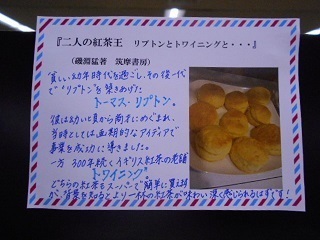 『二人の紅茶王 リプトンとトワイニングと・・・』
(磯淵猛著 筑摩書房)
貧しい幼年時代を過ごし、その後一代
で"リプトン"を築きあげた
トーマス・リプトン。
彼は幼い頃から商才にめぐまれ、
当時としては画期的なアイディアで
事業を成功に導きました。
一方 300年続くイギリス紅茶の老舗
トワイニング
どちらの紅茶もスーパーで簡単に買えますが
が、背景を知るとより一杯の紅茶が味わい深く感じられるはずです!